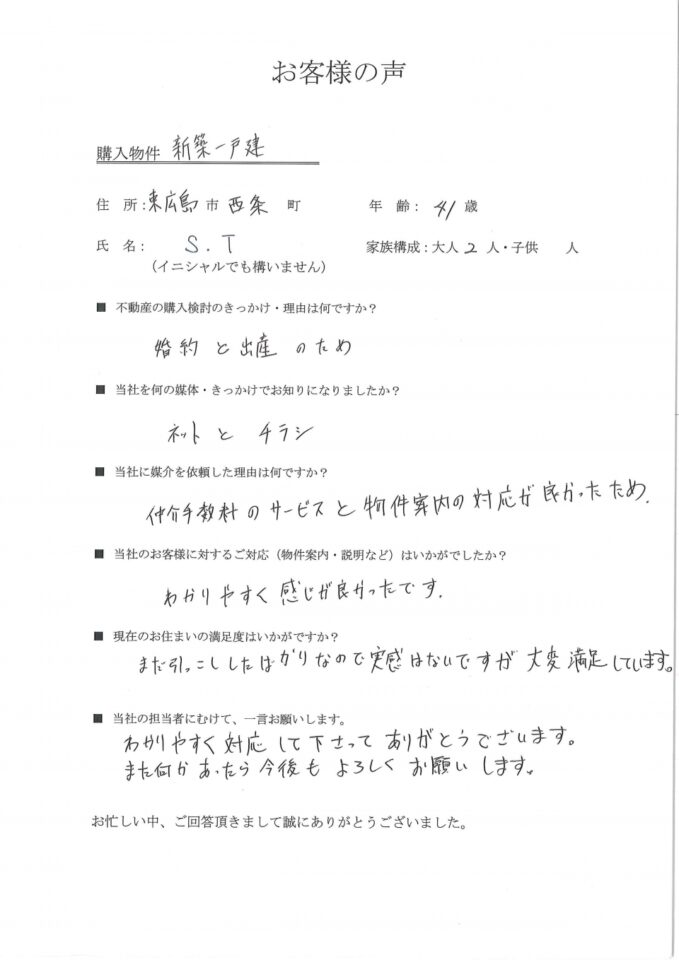 お客様の声
購入物件 新築一戸建
住 所：東広島市 西条 町 年 齢： 41 歳
氏 名： S.T 家族構成：大人 2 人・子供 人
（イニシャルでも構いません）
■ 不動産の購入検討のきっかけ・理由は何ですか？
婚約と出産のため
■ 当社を何の媒体・きっかけでお知りになりましたか？
ネットとチラシ
■ 当社に媒介を依頼した理由は何ですか？
仲介手数料のサービスと物件案内の対応が良かったため.
■ 当社のお客様に対するご対応（物件案内・説明など）はいかがでしたか？
わかりやすく感じが良かったです.
■ 現在のお住まいの満足度はいかがですか？
まだ引っこししたばかりなので実感はないですが大変満足しています。
■ 当社の担当者にむけて、一言お願いします。
わかりやすく対応して下さってありがとうございます。
また何かあったら今後もよろしくお願いします。
お忙しい中、ご回答頂きまして誠にありがとうございました。